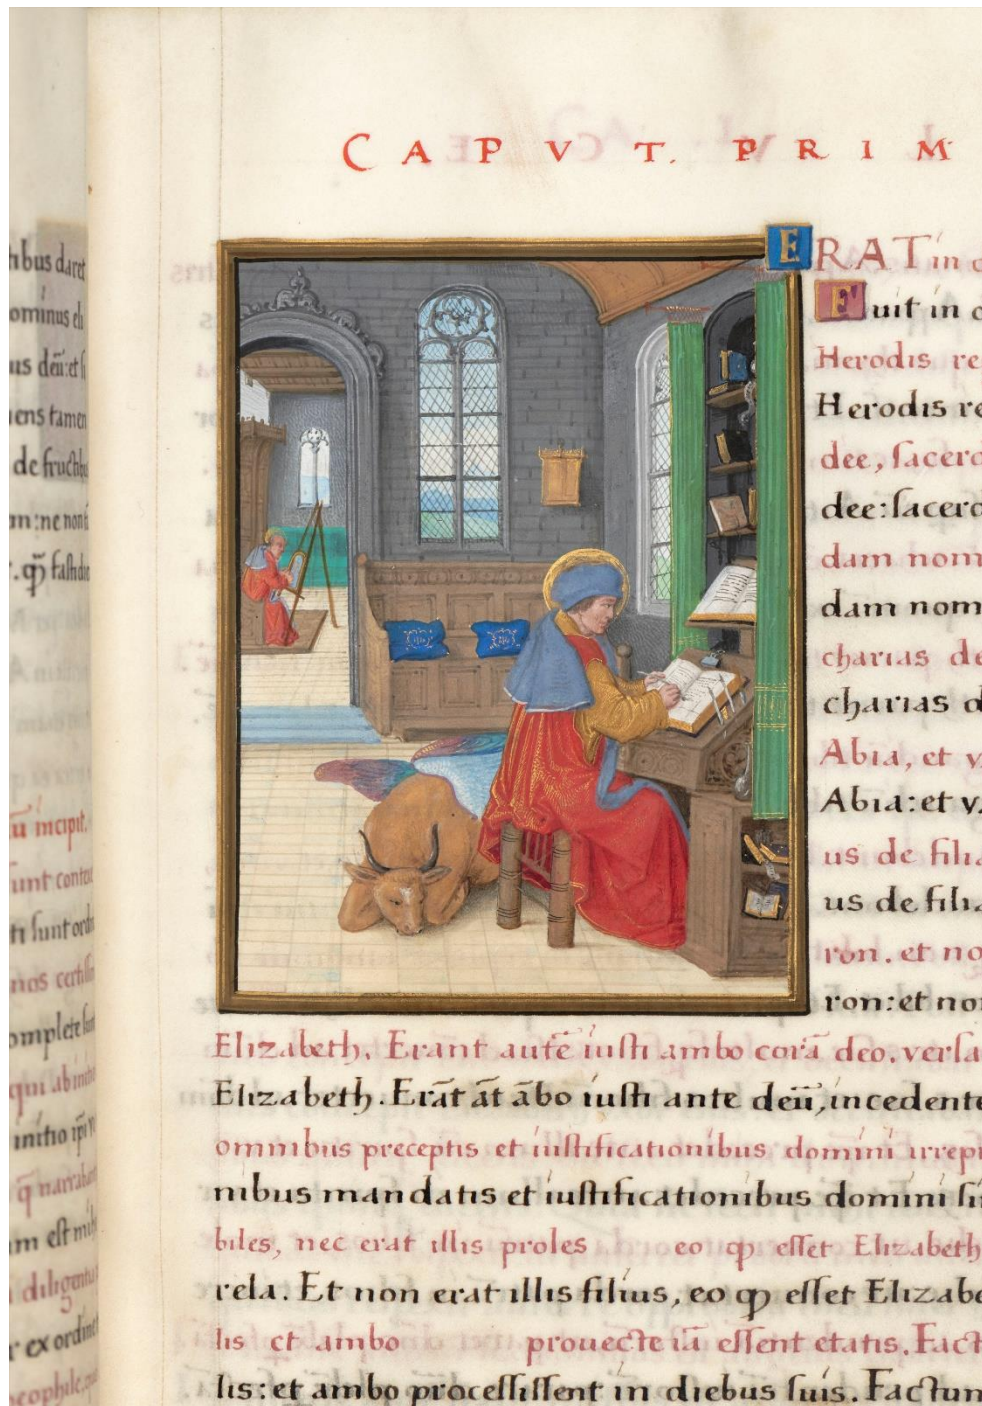 tibus daret
ominus eli
us deū: et li
iens tamen
de fructibus
m: ne non
. qꝫ fastidie
ū incipit.
unt content
ti sunt ordi
nos certissim
omplete sunt
qui ab initio
initio ipi vi
q̄ narrabant
um est mihi
diligenter
r ex ordine
heophile,
CAPVT. PRIM
ERAT in
Fuit in
Herodis re
Herodis re
dee, sacerd
dee: sacerd
dam nom
dam nom
charias de
charias d
Abia, et v
Abia: et v
us de filia
us de filia
ron. et no
ron: et non
Elizabeth. Erant autē iusti ambo corā deo. versa
Elizabeth. Erāt āt ābo iusti ante deū, incedente
omnibus preceptis et iustificationibus domini irrepr
nibus mandatis et iustificationibus domini si
biles, nec erat illis proles eo ꝙ esset Elizabeth
rela. Et non erat illis filius, eo ꝙ esset Elizabe
lis et ambo prouecte iā essent etatis. Fact
lis: et ambo processissent in diebus suis. Factum